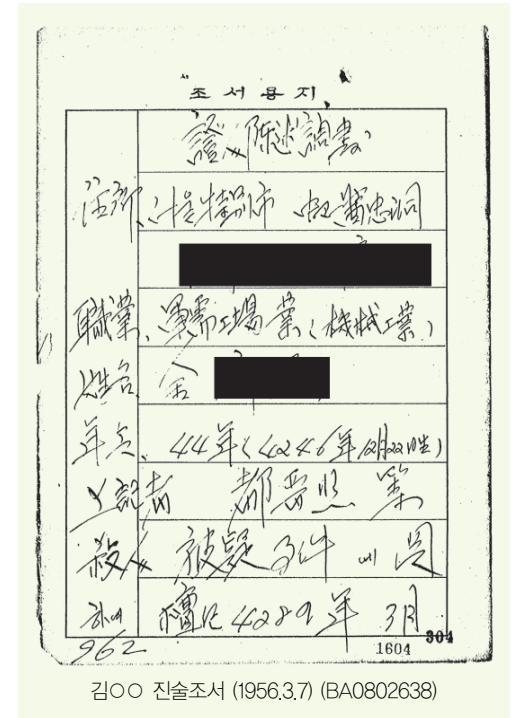 조서용지
證人陳述調書
住所, 서울特別市 中區 奬忠洞
職業, 軍需工場業(機械工業)
姓名 金
年令, 44年(4246年12月22日生)
上記者 都晋熙 等
殺人 被疑事件에 関
하여 檀紀 4289年 3月
304
962
1604
김○○ 진술조서 (1956.3.7) (BA0802638)